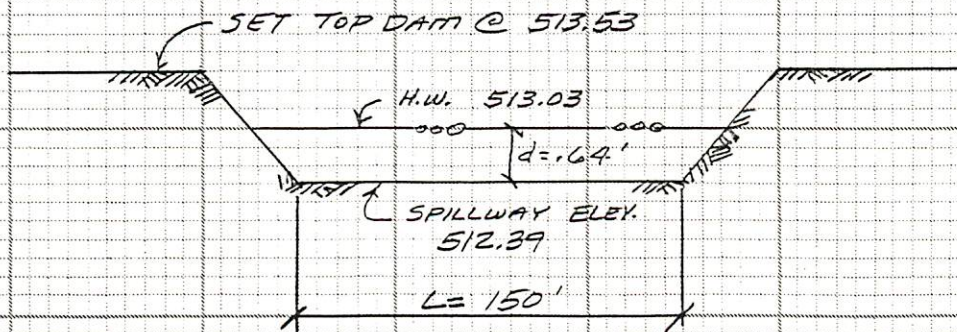 SET TOP DAM @ 513.53
H.W. 513.03
d=.64'
SPILLWAY ELEV.
512.39
L= 150'